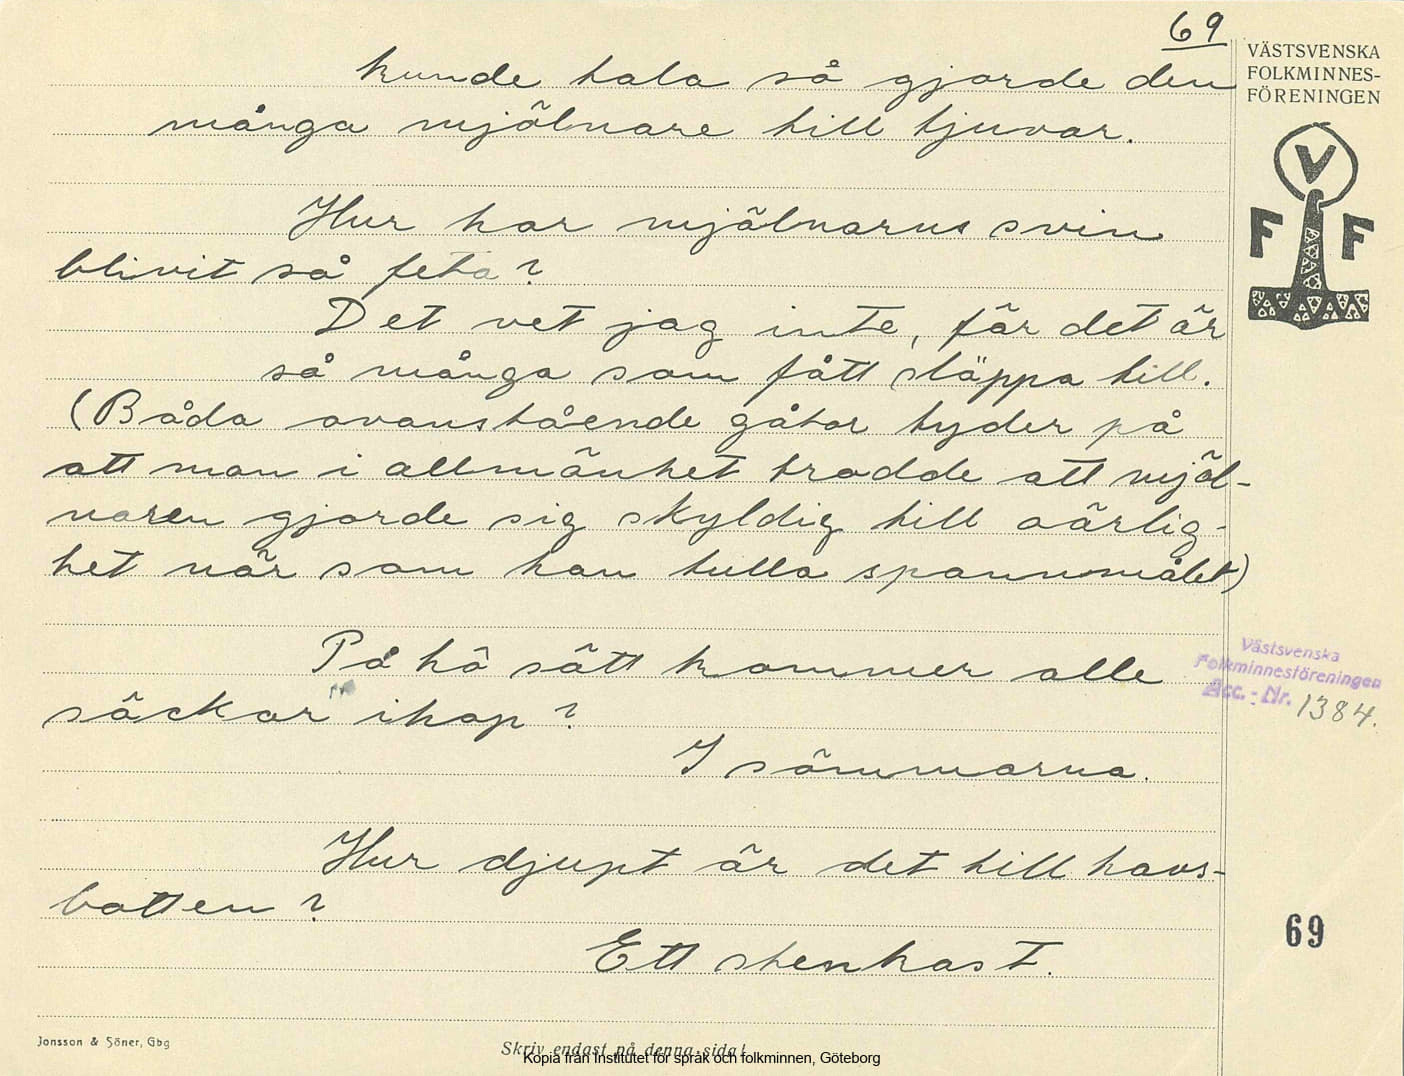 69
VÄSTSVENSKA
FOLKMINNES-
FÖRENINGEN
kunde tala så gjorde den
många mjölnare till tjuvar.
V
F F
Hur har mjölnarns svin
blivit så feta?
Det vet jag inte, för det är
så många som fått släppa till.
(Båda ovanstående gåtor tyder på
att man i allmänhet trodde att mjöl-
naren gjorde sig skyldig till oärlig-
het när som han tulla spannmålet)
På hå sätt kommer alle
säckar ihop?
Västsvenska
Folkminnesföreningen
Acc.-Nr. 1384.
I sömmarna.
Hur djupt är det till havs-
botten?
69
Ett stenkast.
Jonsson & Söner, Gbg
Skriv endast på denna sida!
Kopia från Institutet för språk och folkminnen, Göteborg